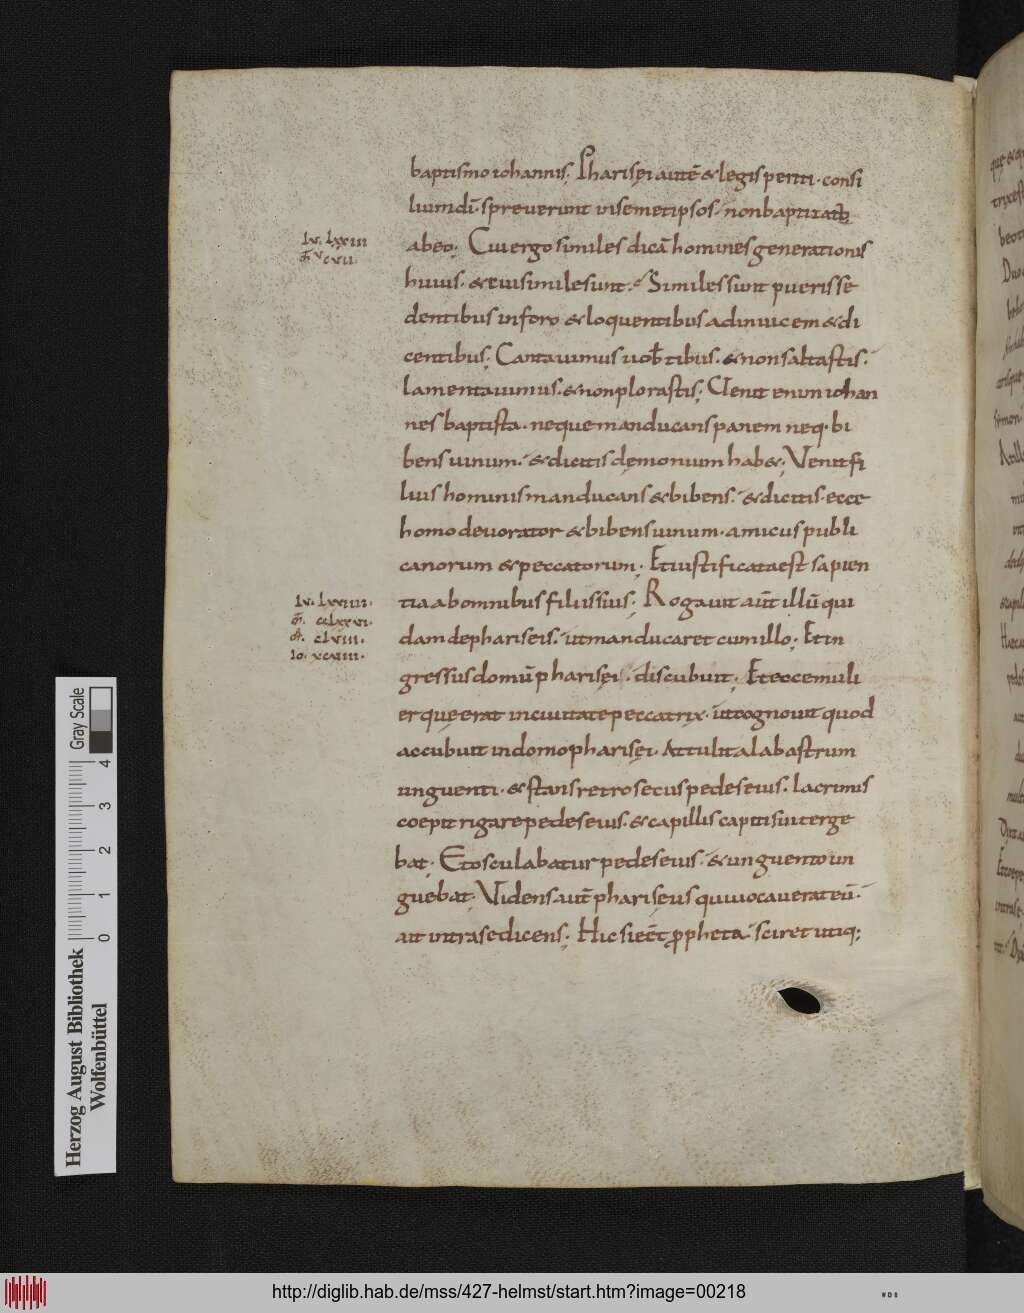 baptismo iohannis; Pharisęi autē & legisperiti · consi
lium dī · spreverunt in semetipsos · non baptizati
ab eo; Cui ergo similes dicā homines generationis
lv. lxxiii
huius · & cui similes sunt · Similes sunt pueris se
dentibus in foro & loquentibus ad invicem & di
centibus; Cantavimus vobis tibiis · & non saltastis ·
lamentavimus · & non plorastis; Venit enim iohan
nes baptista · neque manducans panem neq· bi
bens vinum · & dicitis dęmonium hab&; Venit fi
lius hominis manducans & bibens · & dicitis · ecce
homo devorator & bibens vinum · amicus publi
canorum & peccatorum; Et iustificata est sapien
tia ab omnibus filiis suis; Rogavit aūt illū qui
lv. lxxiiii.
dam de phariseis · ut manducaret cum illo; Et in
cclxxvi.
clviii.
Io. xcviii.
gressus domū pharisęi · discubuit; Et ecce muli
er quę erat in civitate peccatrix · ut cognovit quod
accubuit in domo pharisęi · Attulit alabastrum
unguenti · & stans retro secus pedes eius · Lacrimis
coepit rigare pedes eius · & capillis capitis sui terge
bat; Et osculabatur pedes eius · & unguento un
guebat; Videns aūt phariseus qui vocaverat eū ·
ait intra se dicens; Hic si eēt ꝓpheta · sciret utiq;
Gray Scale
0 1 2 3 4
Herzog August Bibliothek
Wolfenbüttel
http://diglib.hab.de/mss/427-helmst/start.htm?image=00218